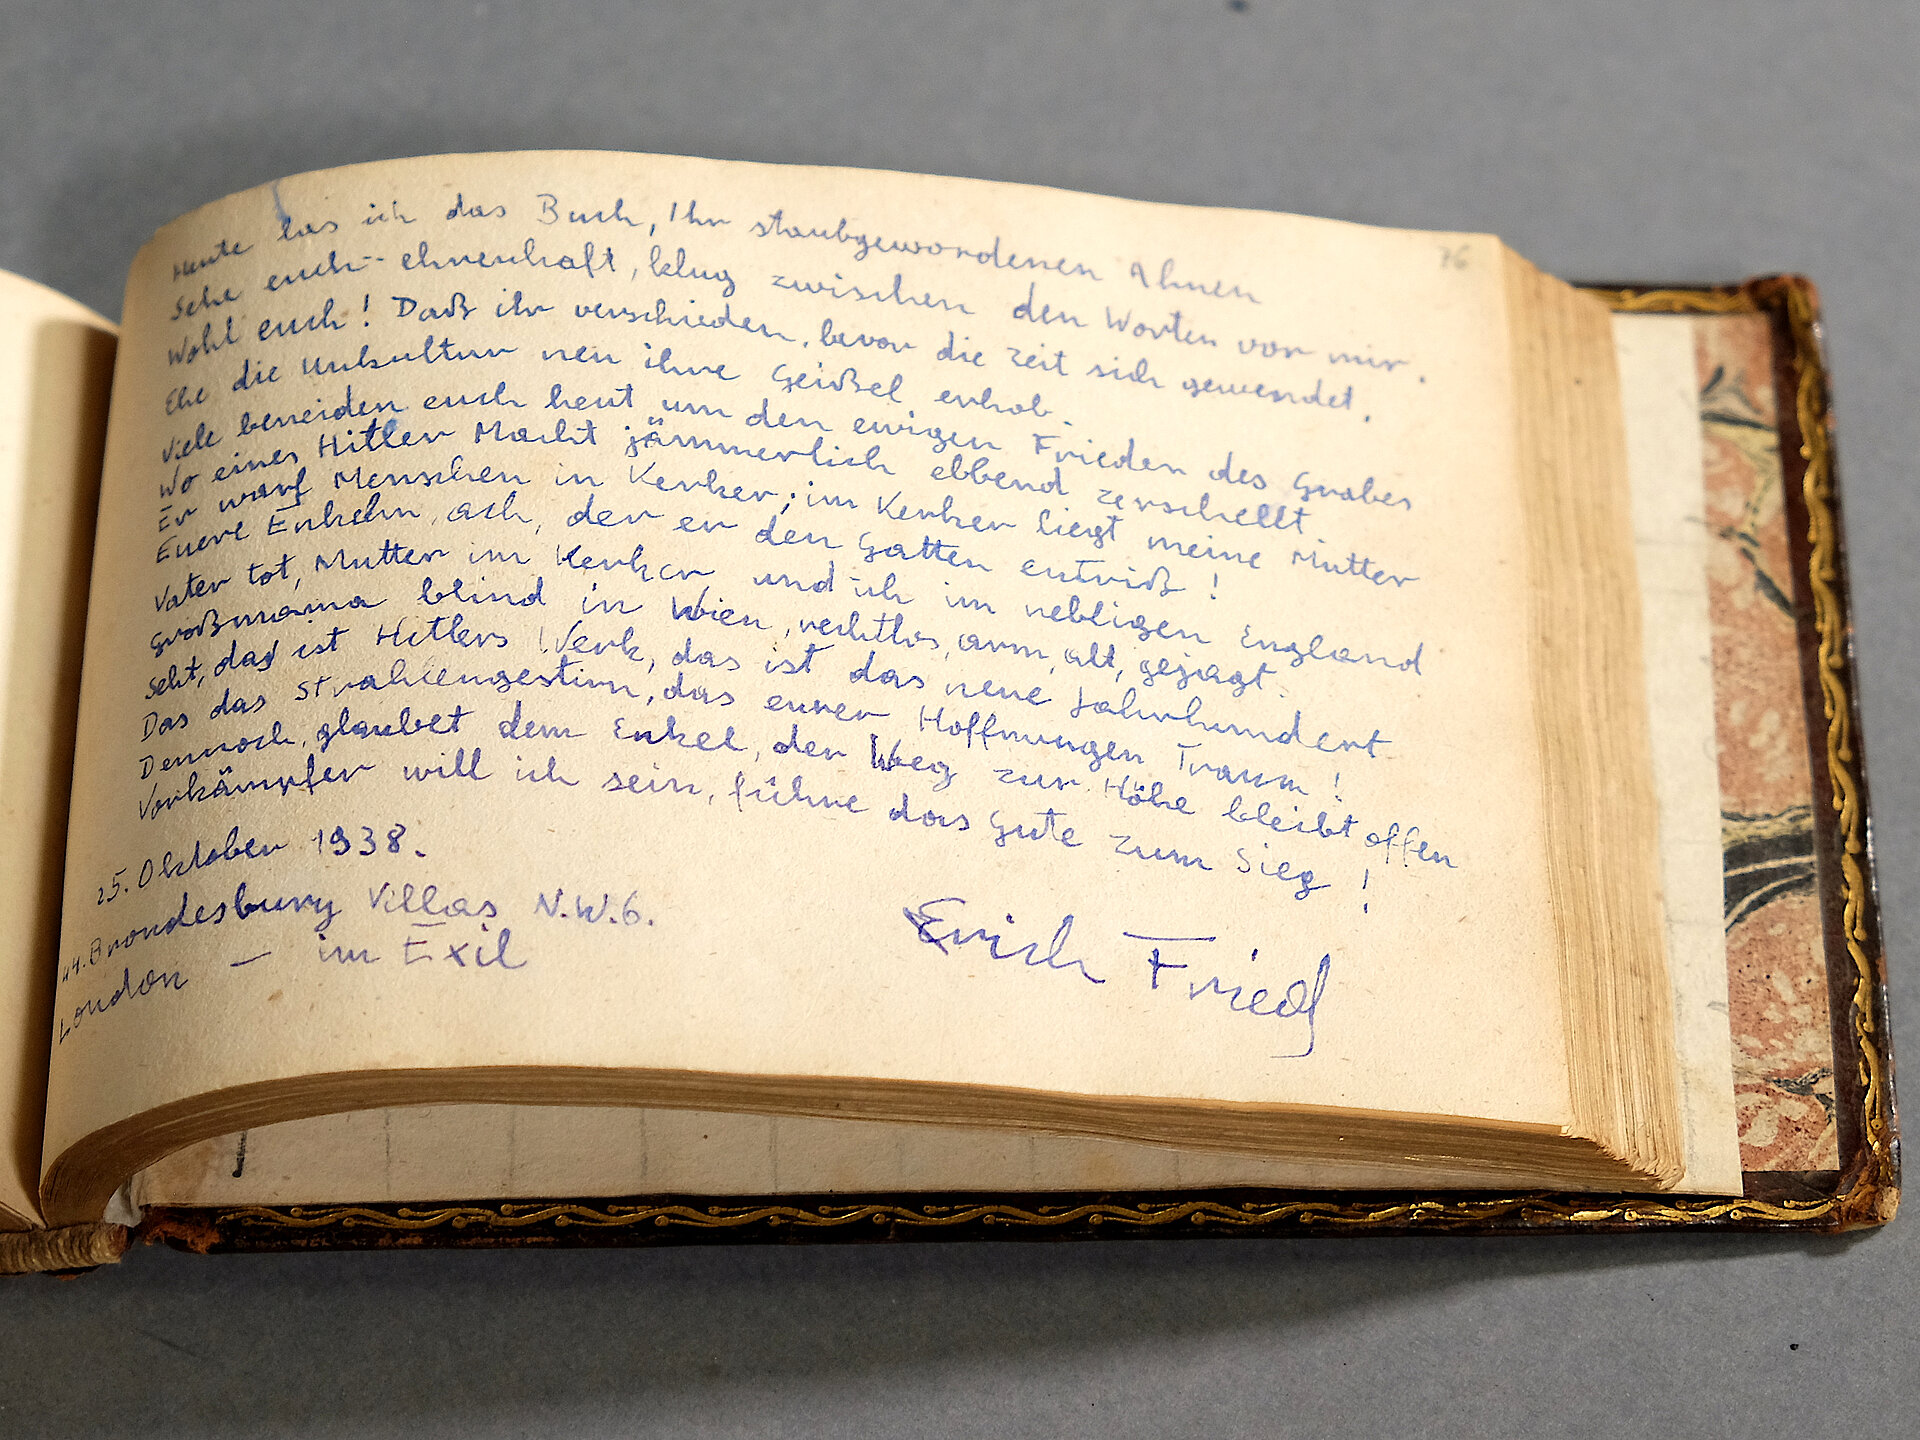 76
Heute las ich das Buch, Ihr staubgewordenen Ahnen
Sehe euch - ehrenhaft, klug zwischen den Worten vor mir.
Wohl euch! Daß ihr verschieden, bevor die Zeit sich gewendet,
Ehe die Unkultur neu ihre Geißel erhob.
Viele beneiden euch heut um den ewigen Frieden des Grabes
Wo eines Hitler Macht jämmerlich ebbend zerschellt
Er warf Menschen in Kerker; im Kerker liegt meine Mutter
Euere Enkelin, ach, der er den Gatten entriß!
Vater tot, Mutter im Kerker und ich im nebligen England
Großmama blind in Wien, rechtlos, arm, alt, gejagt.
Seht, das ist Hitlers Werk, das ist das neue Jahrhundert
Das das Strahlengestirn, das eurer Hoffnungen Traum!
Dennoch, glaubet dem Enkel, der Weg zur Höhe bleibt offen
Vorkämpfer will ich sein, führe das Gute zum Sieg!
25. Oktober 1938.
44. Brondesbury Villas N.W.6.
London — im Exil
Erich Fried